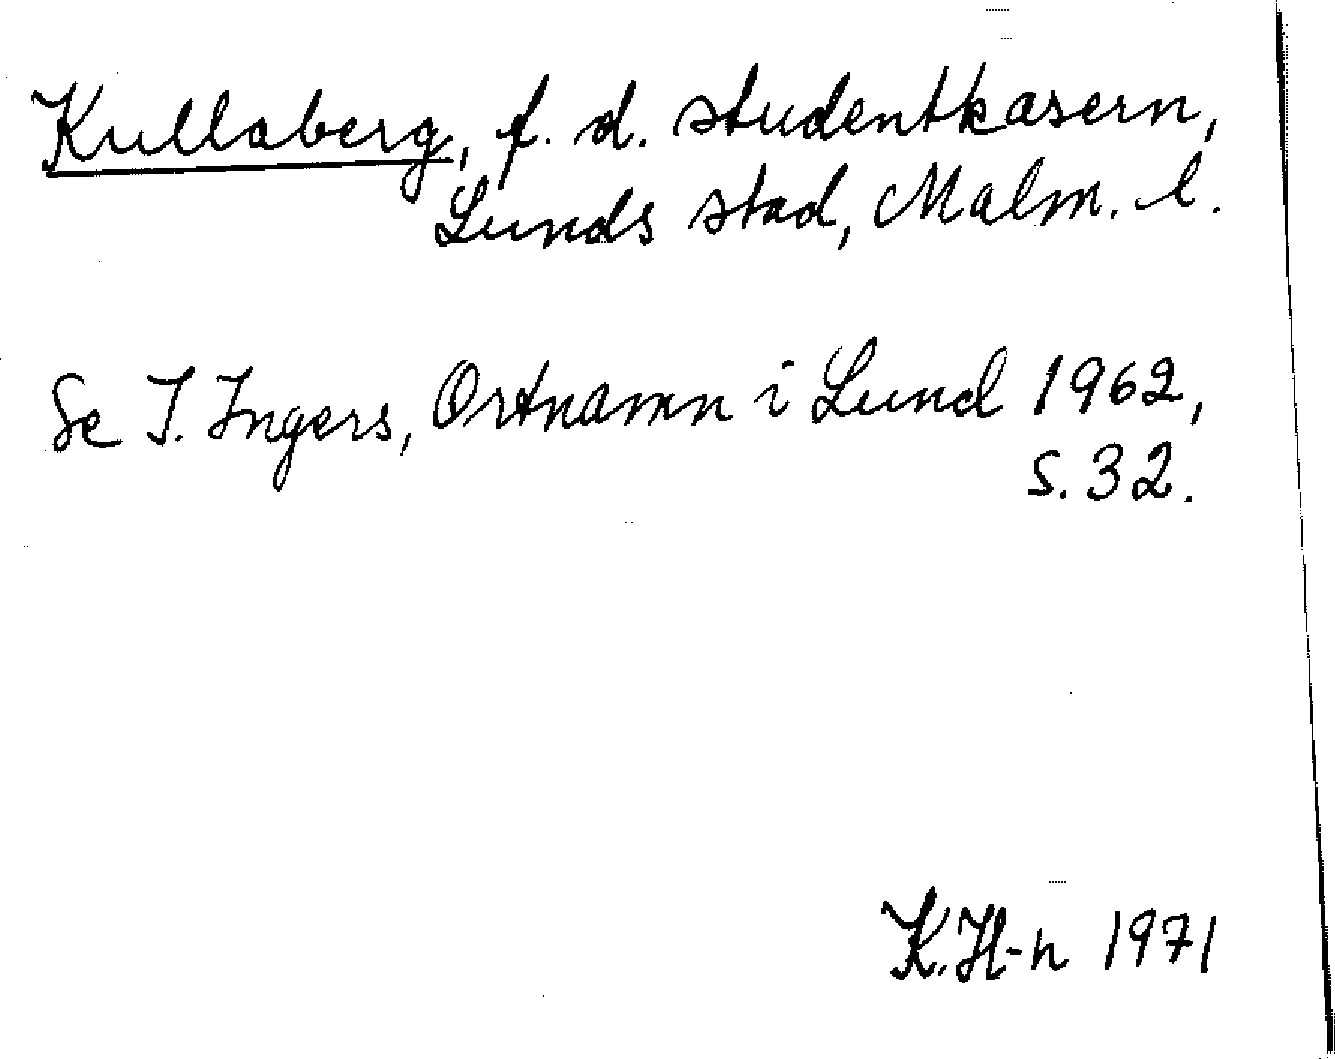 Kullaberg, f. d. studentkasern,
Lunds stad, Malm. l.
Se I. Ingers, Ortnamn i Lund 1962,
s. 32.
K. H-n 1971